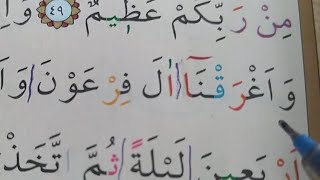 مِنْ رَبِّكُمْ عَظِيمٌ ﴿٤٩﴾ وَاِ
وَاَغْرَقْنَٓا اٰلَ فِرْعَوْنَ وَاَ
اَرْبَعِينَ لَيْلَةً ثُمَّ تَّخَذْ